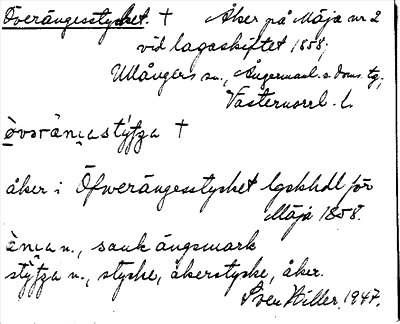 Överängesstycket. † Åker på Mäja nr 2
vid lagaskiftet 1858;
Ullångers sn., Ångermanl. s. doms. tg.,
Västernorrl. l.
†
åker i Öfwerängesstycket lgskhdl för
Mäja 1858.
n., sank ängsmark
n., stycke, åkerstycke, åker.
Sven Hiller. 1947.